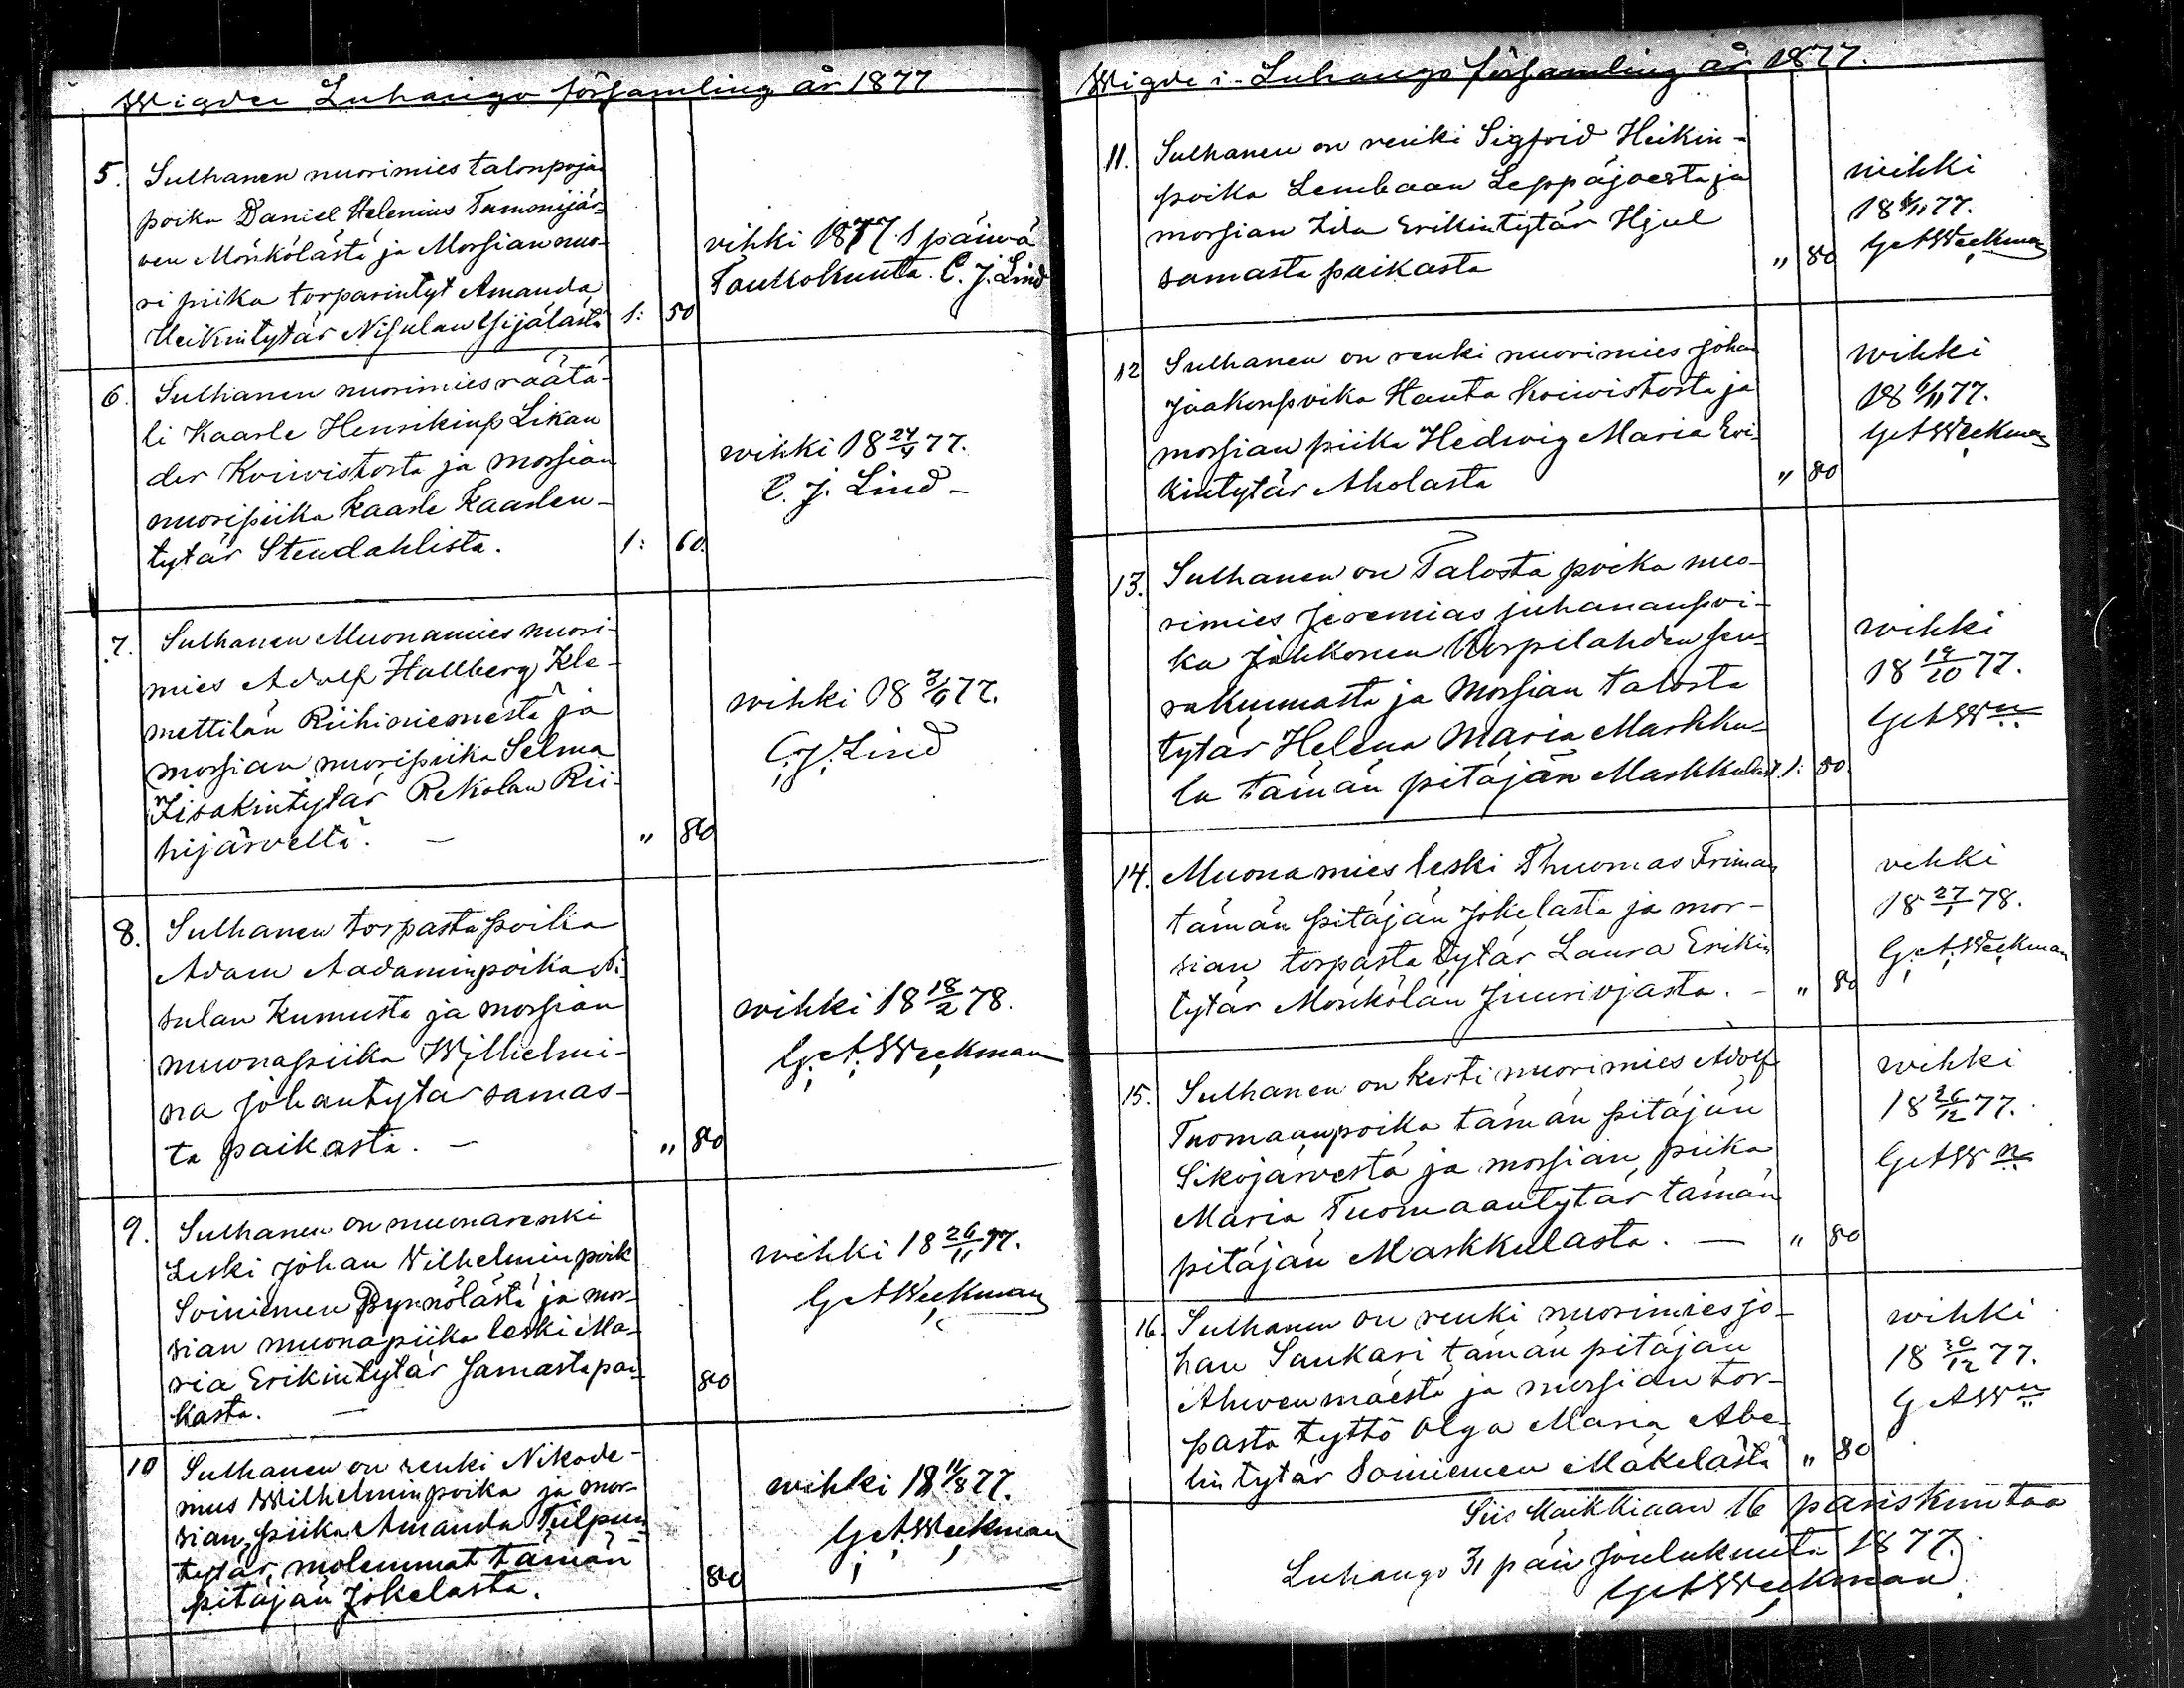 Wigde i Luhango församling år 1877
5. Sulhanen nuorimies talonpojan
poika Daniel Helenius Tammijär-
ven Mönkölästä ja Morsian nuo-
ri piika torparintyt Amanda
Heikintytär Nisulan 1: 50
vihki 1877 1 päiwä
Toukokuuta. C. J. Lind
6. Sulhanen nuorimies räätä-
li Kaarle Henrikinp Likan
der Koivistosta ja morsian
nuoripiika Kaarle Kaarlen-
tytär Stendahlista. 1: 60.
wihki 18 24/4 77.
C. J. Lind -
7. Sulhanen Muonamies nuori-
mies Adolf Hallberg Kle-
mettilän Riihiniemestä ja
morsian nuoripiika Selma
Iisakintytär Rekolan Rii-
hijärveltä. - " 80
wihki 18 77.
C. J. Lind
8. Sulhanen torpasta poika
Adam Aadaminpoika Ni
sulan Kumusta ja morsian
muonapiika Wilhelmi-
na Johantytär samas-
ta paikasta. - " 80
wihki 18 18/2 78.
G. A. Weekman
9. Sulhanen on muonarenki
Leski Johan Vilhelmin poik
Soiniemen Pynnölästä ja mor-
sian muonapiika leski Ma-
ria Erikintytär Samasta pai-
kasta. - 80
wihki 18 26/11 77.
G A Weekman
10 Sulhanen on renki Nikode-
mus Wilhelmin poika ja mor-
sian, piika Amanda Tiilpun
tytär, molemmat tämän
pitäjän Jokelasta. 80
wihki 18 11/8 77.
G. A. Weekman
Wigde i Luhango församling år 1877.
11. Sulhanen on renki Sigfrid Heikin-
poika Lembaan Leppäjoesta ja
morsian Ida Erikintytär Hjul
samasta paikasta " 80
wihki
18 6/11 77.
G A Weekman
12 Sulhanen on renki nuorimies Johan
Jaakonpoika Hauta Koivistosta ja
morsian piika Hedwig Maria Eri-
kintytär Aholasta " 80
wihki
18 6/11 77.
G A Weekman
13. Sulhanen on Talosta poika nuo-
rimies Jeremias Juhananpoi-
ka Jähkonen Korpilahden seu-
rakunnasta ja Morsian talosta
tytär Helena Maria Markku-
la tämän pitäjän Markkulast 1: 80.
wihki
18 19/10 77.
G A W n
14. Muonamies leski Thuomas Friman
tämän pitäjän Jokelasta ja mor-
sian torpasta tytär Laura Erikin
tytär Mönkölän Juuriojasta. - " 80
vihki
18 27/1 78.
G. A. Weekman
15. Sulhanen on Kesti nuorimies Adolf
Tuomaanpoika tämän pitäjän
Sikojärvestä ja morsian piika
Maria Tuomaantytär tämän
pitäjän Markkulasta. - " 80
wihki
18 26/12 77.
G A W n
16. Sulhanen on renki nuorimies Jo-
han Saukari tämän pitäjän
Ahvenmäestä ja morsian tor-
pasta tyttö Olga Maria Abe-
lin tytär Soiniemen Mäkelästä " 80
wihki
18 30/12 77.
G A W n
Siis Kaikkiaan 16 pariskuntaa
Luhango 31 päiv Joulukuuta 1877.
G A Weekman